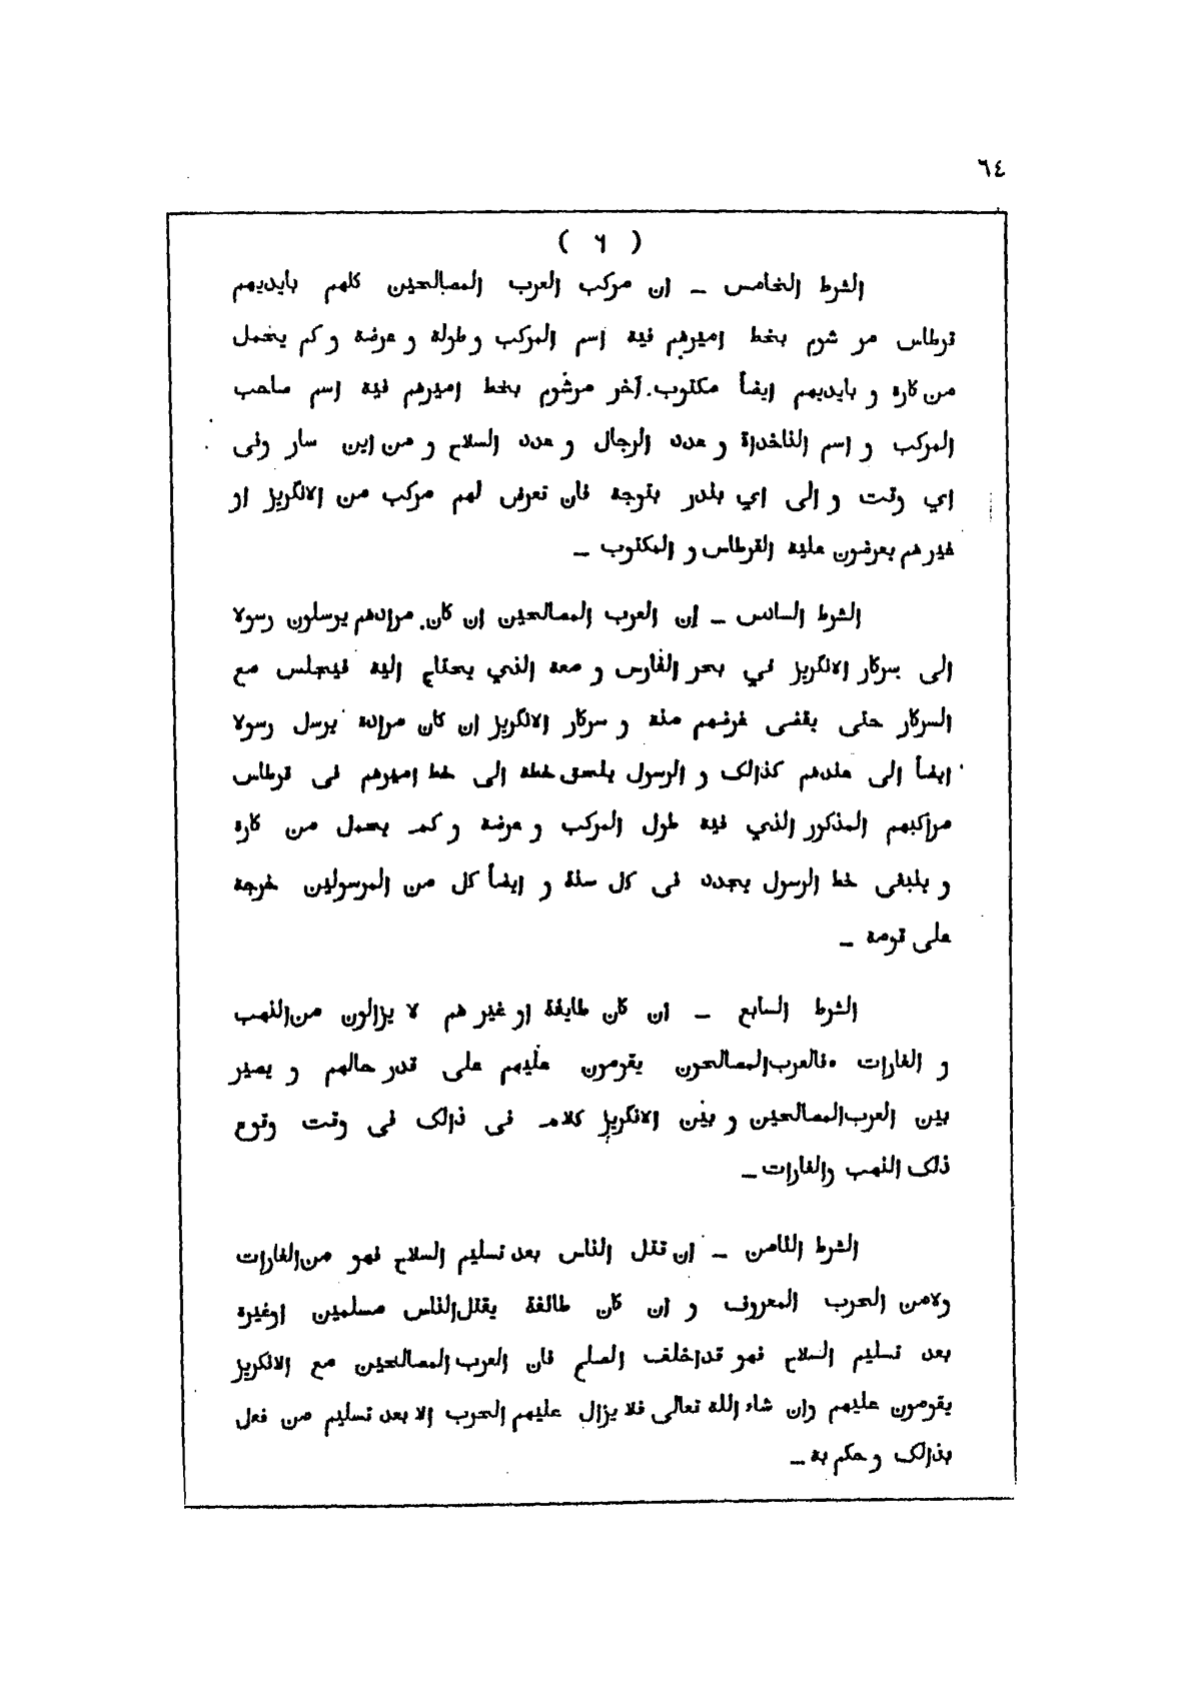 ٦٤
( ٦ )
الشرط الخامس ـ ان مركب العرب المصالحين كلهم بأيديهم
قرطاس مر شوم بخط اميرهم فيه اسم المركب و طولة و عرضة و كم يحمل
من كارة و بايديهم ايضاً مكتوب. آخر مرشوم بخط اميرهم فيه اسم صاحب
المركب و اسم الناخداة و عدد الرجال و عدد السلاح و من اين سار وفى
اي وقت و الى اي بندر بتوجة فان تعرض لهم مركب من الانكريز او
غيرهم يعرضون علية القرطاس و المكتوب ـ
الشرط السادس ـ إن العرب المصالحين ان كان مرادهم يرسلون رسولا
الى سركار الانكريز في بحر الفارس و معة الذي يحتاج الية فيجلس مع
السركار حتى يقضى غرضهم منة و سركار الانكريز ان كان مرادة يرسل رسولا
ايضاً الى عندهم كذالك و الرسول يلحق خطة الى خط اميرهم فى قرطاس
مراكبهم المذكور الذي فية طول المركب و عرضة و كم يحمل من كارة
و ينبغى خط الرسول يجدد فى كل سنة و ايضاً كل من المرسولين خرجة
على قومة ـ
الشرط السابع ـ ان كان طايفة او غير هم لا يزالون من النهب
و الغارات فالعرب المصالحون يقومون عليهم على قدر حالهم و يصير
بين العرب المصالحين و بين الانكريز كلام فى ذالك فى وقت وقوع
ذلك النهب والغارات ـ
الشرط الثامن ـ ان قتل الناس بعد تسليم السلاح فهو من الغارات
ولامن الحرب المعروف و ان كان طائفة يقتل الناس مسلمين اوغيرة
بعد تسليم السلاح فهو قد اخلف الصلح فان العرب المصالحين مع الانكريز
يقومون عليهم وان شاء اللة تعالى فلا يزال عليهم الحرب الا بعد تسليم من فعل
بذالك و حكم بة ـ